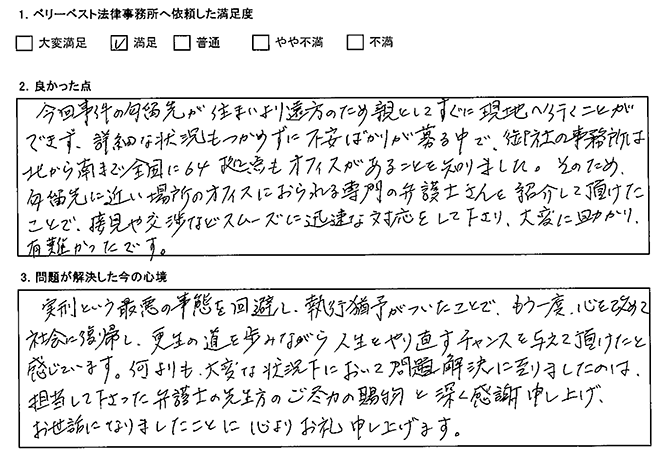 1. ベリーベスト法律事務所へ依頼した満足度
□ 大変満足 ☑ 満足 □ 普通 □ やや不満 □ 不満
2. 良かった点
今回事件の勾留先が住まいより遠方のため親としてすぐに現地へ行くことが
できず、詳細な状況もつかめずに不安ばかりが募る中で、御社の事務所は
北から南まで全国に64拠点もオフィスがあることを知りました。そのため、
勾留先に近い場所のオフィスにおられる専門の弁護士さんを紹介して頂けた
ことで、接見や交渉などスムーズに迅速な対応をして下さり、大変に助かり、
有難かったです。
3. 問題が解決した今の心境
実刑という最悪の事態を回避し、執行猶予がついたことで、もう一度、心を改めて
社会に復帰し、更生の道を歩みながら人生をやり直すチャンスを与えて頂けたと
感じています。何よりも、大変な状況下において問題解決に至りましたのは、
担当して下さった弁護士の先生方のご尽力の賜物と深く感謝申し上げ、
お世話になりましたことに心よりお礼申し上げます。